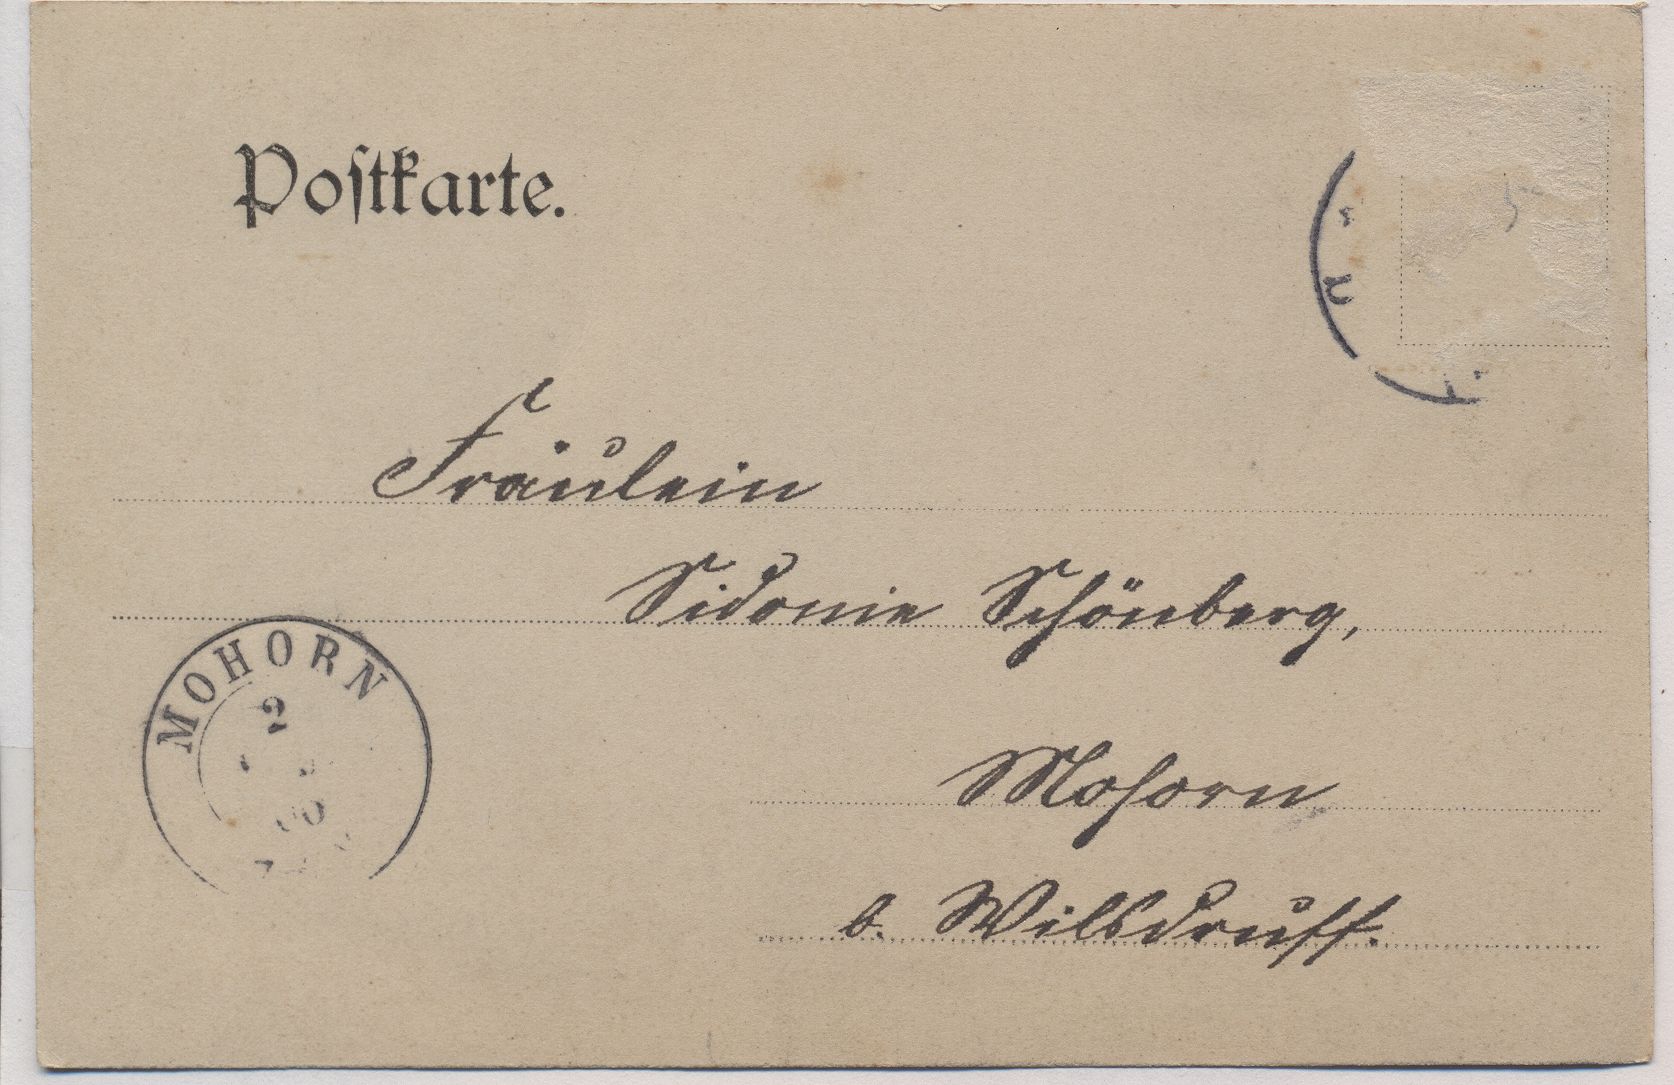 Postkarte.
5
Fräulein
Sidonie Schönberg,
MOHORN
2
Mohorn
b. Wilsdruff.